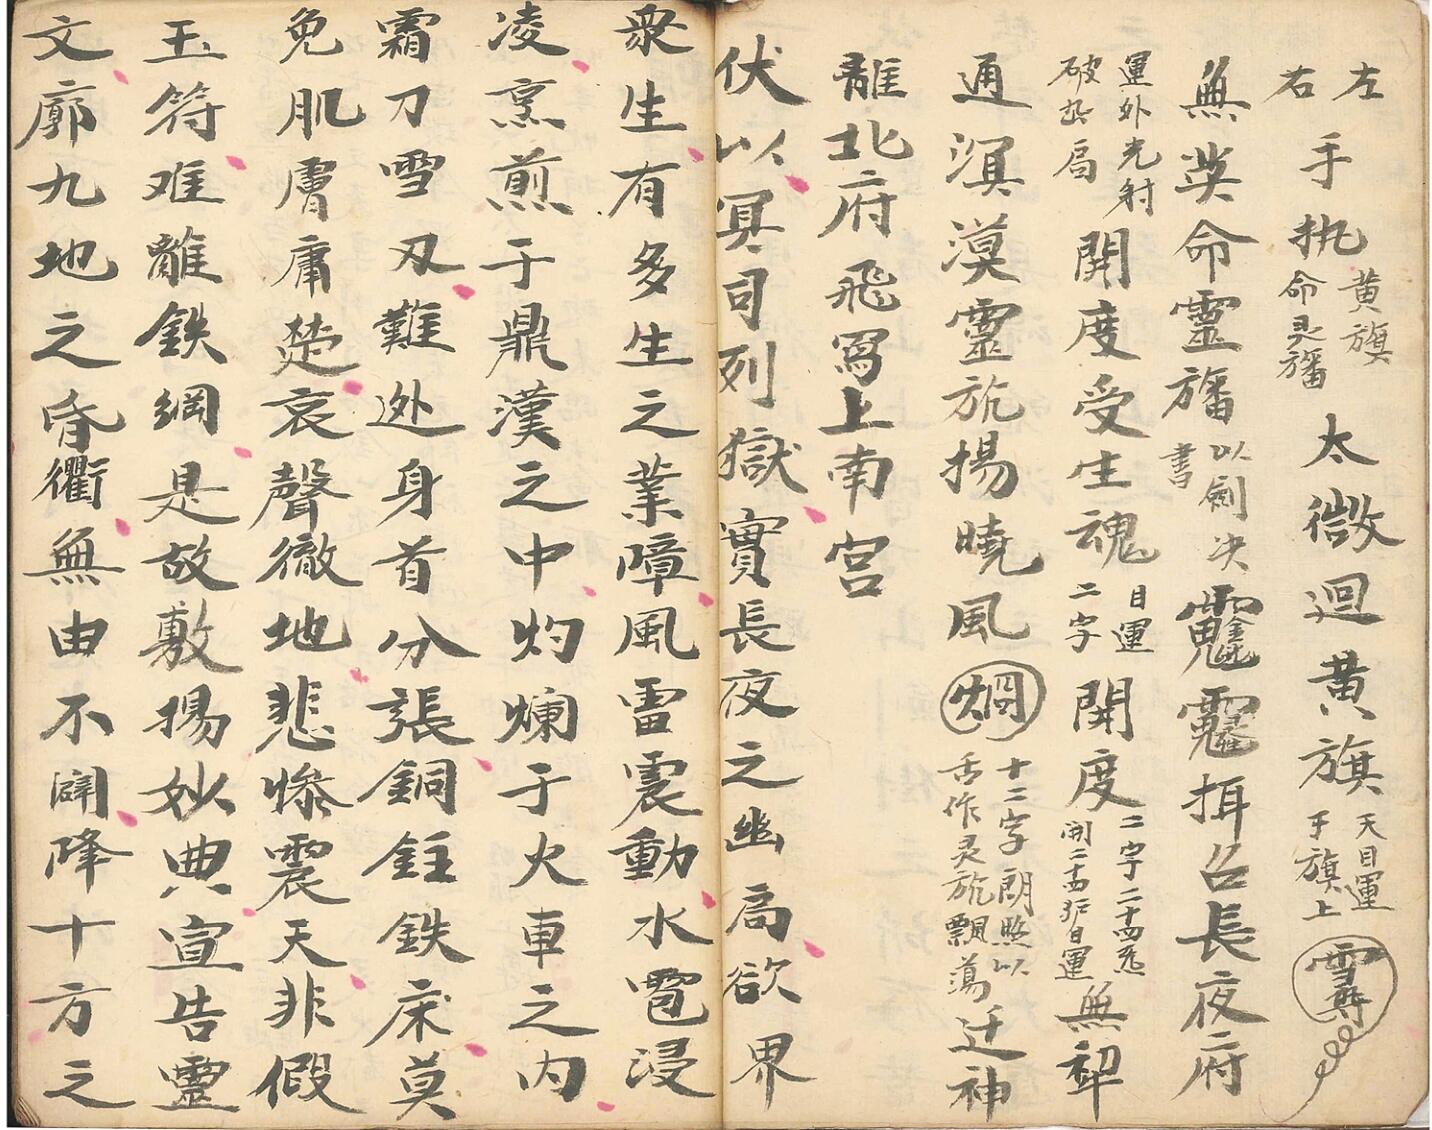 左右手执黄旗命灵旛太微迴黄旗天目運于旗上
無英命靈旛以劍决書攝召長夜府
運外光射破於扃開度受生魂目運二字開度二字二十四
通滇漠靈旂揚曉風炯十二字朗照以舌作灵旂飄蕩迁神
離北府飛寫上南宫
伏以冥司列獄實長夜之幽扃欲界
衆生有多生之業障風雷震動水雹浸
凌烹煎于鼎漢之中灼爛于火車之内
霜刀雪刃難逊身首分張銅鉒鉄床莫
免肌膚痛楚哀聲徹地悲慘震天非假
玉符难離鉄綱是故敷揚妙典宣告靈
文廓九地之昏衢無由不闢降十方之